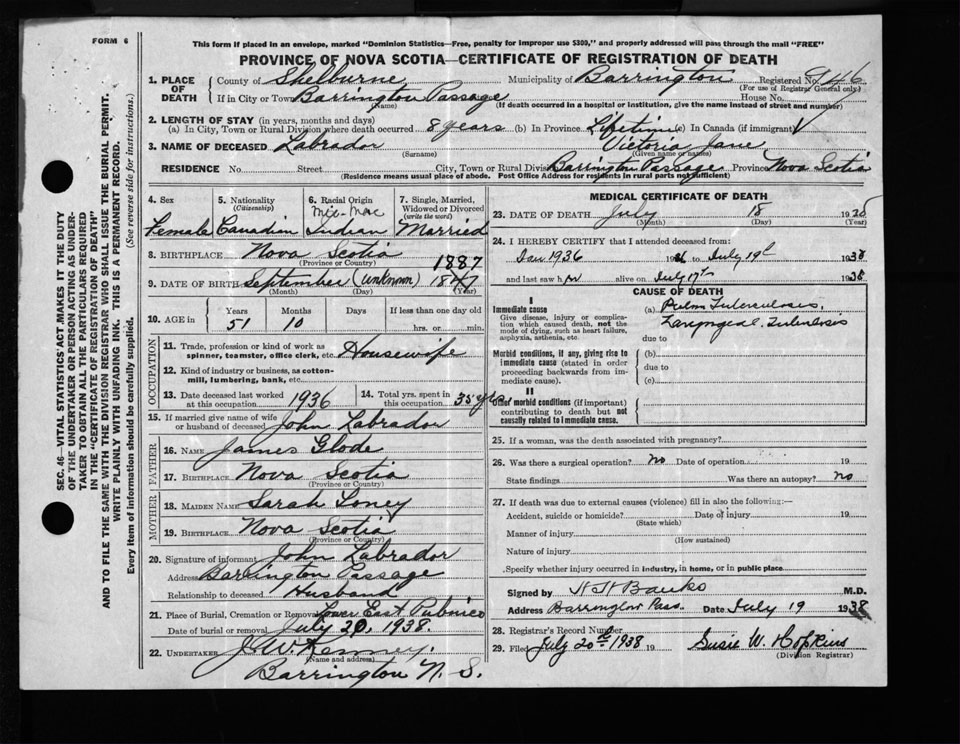 FORM 6
This form if placed in an envelope, marked "Dominion Statistics—Free, penalty for improper use $300," and properly addressed will pass through the mail "FREE"
PROVINCE OF NOVA SCOTIA—CERTIFICATE OF REGISTRATION OF DEATH
1. PLACE OF DEATH County of Shelburne Municipality of Barrington Registered No. 946
(For use of Registrar General only)
If in City or Town Barrington Passage House No.
(Name) (If death occurred in a hospital or institution, give the name instead of street and number)
2. LENGTH OF STAY (in years, months and days)
(a) In City, Town or Rural Division where death occurred 8 years (b) In Province Lifetime (c) In Canada (if immigrant)
3. NAME OF DECEASED Labrador Victoria Jane
(Surname) (Given name or names)
RESIDENCE No. Street City, Town or Rural Division Barrington Passage Province Nova Scotia
(Residence means usual place of abode. Post Office Address for residents in rural parts not sufficient)
4. Sex 5. Nationality (Citizenship) 6. Racial Origin 7. Single, Married, Widowed or Divorced (write the word)
Female Canadian Mic-Mac Indian Married
8. BIRTHPLACE Nova Scotia
(Province or Country)
1887
9. DATE OF BIRTH September (unknown) 18
(Month) (Day) (Year)
10. AGE in Years Months Days If less than one day
51 10 hrs. or min.
OCCUPATION
11. Trade, profession or kind of work as spinner, teamster, office clerk, etc. Housewife
12. Kind of industry or business, as cotton-mill, lumbering, bank, etc.
13. Date deceased last worked at this occupation 1936 14. Total yrs. spent in this occupation 35 yrs
15. If married give name of wife or husband of deceased John Labrador
FATHER
16. NAME James Glode
17. BIRTHPLACE Nova Scotia
(Province or Country)
MOTHER
18. MAIDEN NAME Sarah Toney
19. BIRTHPLACE Nova Scotia
(Province or Country)
20. Signature of informant John Labrador
Address Barrington Passage
Relationship to deceased Husband
21. Place of Burial, Cremation or Removal Lower East Pubnico
Date of burial or removal July 20, 1938.
22. UNDERTAKER J. W. Kenney.
(Name and address)
Barrington N. S.
MEDICAL CERTIFICATE OF DEATH
23. DATE OF DEATH July 18 19
(Month) (Day) (Year)
24. I HEREBY CERTIFY that I attended deceased from:
Jan 1936 19 to July 19th 1938
and last saw h er alive on July 17th 1938
CAUSE OF DEATH
I
Immediate cause
Give disease, injury or complication which caused death, not the mode of dying, such as heart failure, asphyxia, asthenia, etc.
(a) Pulm Tuberculosis,
Laryngeal Tuberculosis
due to
Morbid conditions, if any, giving rise to immediate cause (stated in order proceeding backwards from immediate cause).
(b)
due to
(c)
II
Other morbid conditions (if important) contributing to death but not causally related to immediate cause.
25. If a woman, was the death associated with pregnancy?
26. Was there a surgical operation? No Date of operation 19
State findings Was there an autopsy? No
27. If death was due to external causes (violence) fill in also the following:—
Accident, suicide or homicide? Date of injury 19
(State which)
Manner of injury
(How sustained)
Nature of injury
Specify whether injury occurred in industry, in home, or in public place
Signed by H H Banks M.D.
Address Barrington Pass. Date July 19 1938
28. Registrar's Record Number
29. Filed July 20th 1938 19 Susie W. Hopkins
(Division Registrar)
SEC. 46—VITAL STATISTICS' ACT MAKES IT THE DUTY
OF THE UNDERTAKER OR PERSON ACTING AS UNDERTAKER TO OBTAIN ALL THE PARTICULARS REQUIRED
IN THE "CERTIFICATE OF REGISTRATION OF DEATH"
AND TO FILE THE SAME WITH THE DIVISION REGISTRAR WHO SHALL ISSUE THE BURIAL PERMIT.
WRITE PLAINLY WITH UNFADING INK. THIS IS A PERMANENT RECORD.
Every item of information should be carefully supplied. (See reverse side for instructions.)